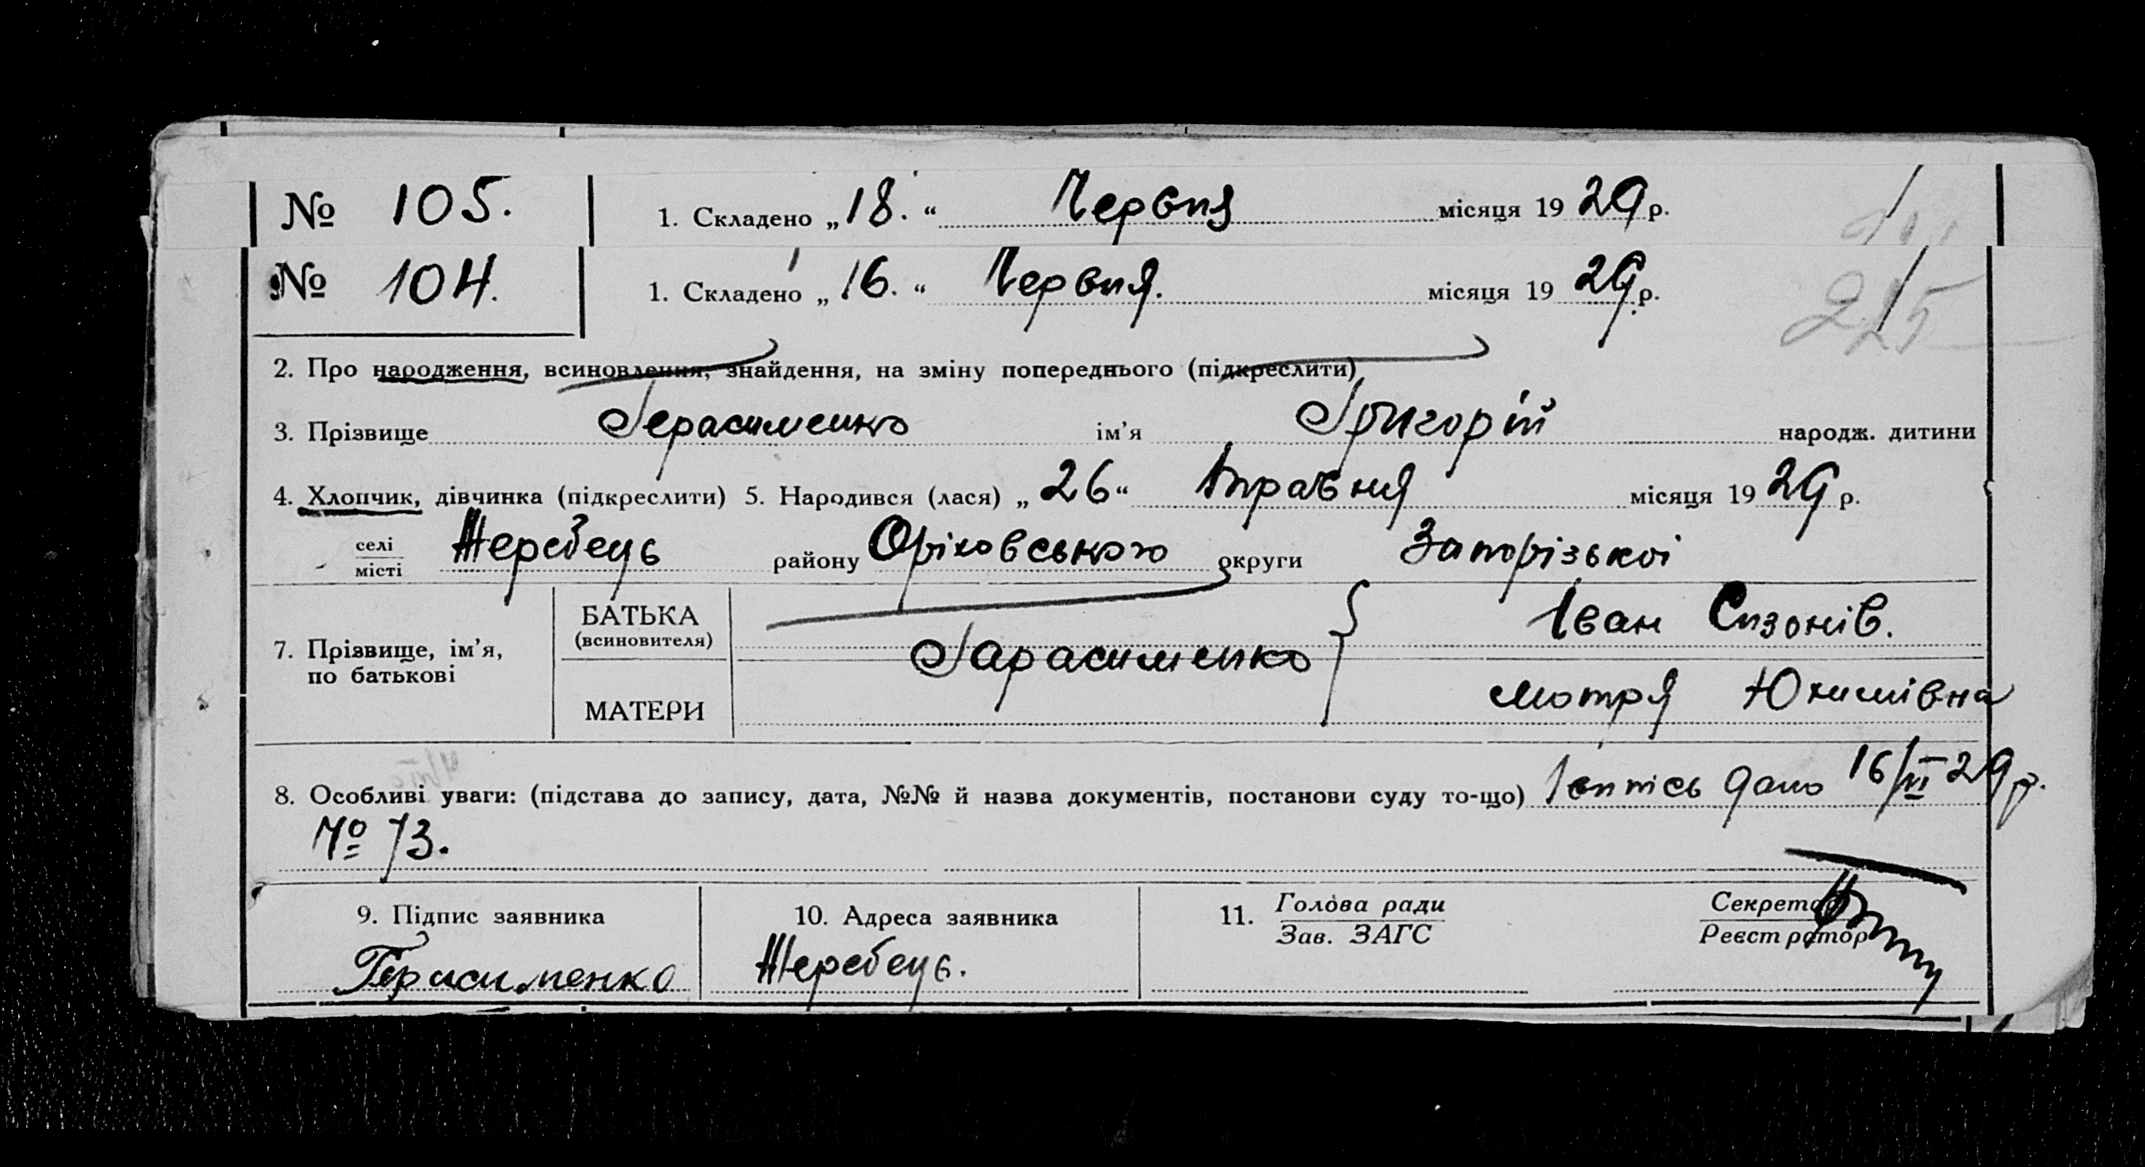 № 105. 1. Складено „18.“ Червня місяця 1929 р.
№ 104. 1. Складено „16.“ Червня. місяця 1929 р. 225
2. Про народження, всиновлення, знайдення, на зміну попереднього (підкреслити)
3. Прізвище Герасименко ім’я Григорій народж. дитини
4. Хлопчик, дівчинка (підкреслити) 5. Народився (лася) „26“ Травня місяця 1929 р.
селі
місті Жеребець району Оріховського округи Запорізької
7. Прізвище, ім’я, по батькові
БАТЬКА (всиновителя) Гарасименко } Іван Сизонів.
МАТЕРИ Мотря Юхимівна
8. Особливі уваги: (підстава до запису, дата, №№ й назва документів, постанови суду то-що) дано 16/VI 29 р.
№ 73.
9. Підпис заявника 10. Адреса заявника 11. Голова ради Секретар
Зав. ЗАГС Реєстратор
Герасименко Жеребець.